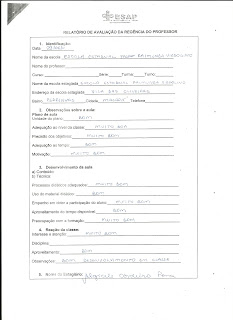 ESAP
RELATÓRIO DE AVALIAÇÃO DA REGÊNCIA DO PROFESSOR
1. Identificação:
Data
Nome da escola ESCOLA ESTADUAL PROFº RAIMUNDO
Nome do professor
Curso Série Turma Turno
Nome da escola estagiada ESCOLA ESTADUAL RAIMUNDO
Endereço da escola estagiada RUA DAS OLIVEIRAS
Bairro FLORESTAS Cidade Telefone
2. Observações sobre a aula:
Plano de aula
Unidade do plano: BOM
Adequação ao nível da classe: MUITO BOM
Precisão dos objetivos: MUITO BOM
Adequação ao tempo: BOM
Motivação: MUITO BOM
3. Desenvolvimento da aula
a) Conteúdo
b) Técnica:
Processos didáticos adequados: MUITO BOM
Uso do material didático: BOM
Empenho em obter a participação do aluno: MUITO BOM
Aproveitamento do tempo disponível: BOM
Preocupação com a motivação: MUITO BOM
4. Reação da classe:
Interesse e atenção: MUITO BOM
Disciplina:
Aproveitamento: BOM
Observações: BOM DESENVOLVIMENTO DA CLASSE
5. Nome do Estagiário: